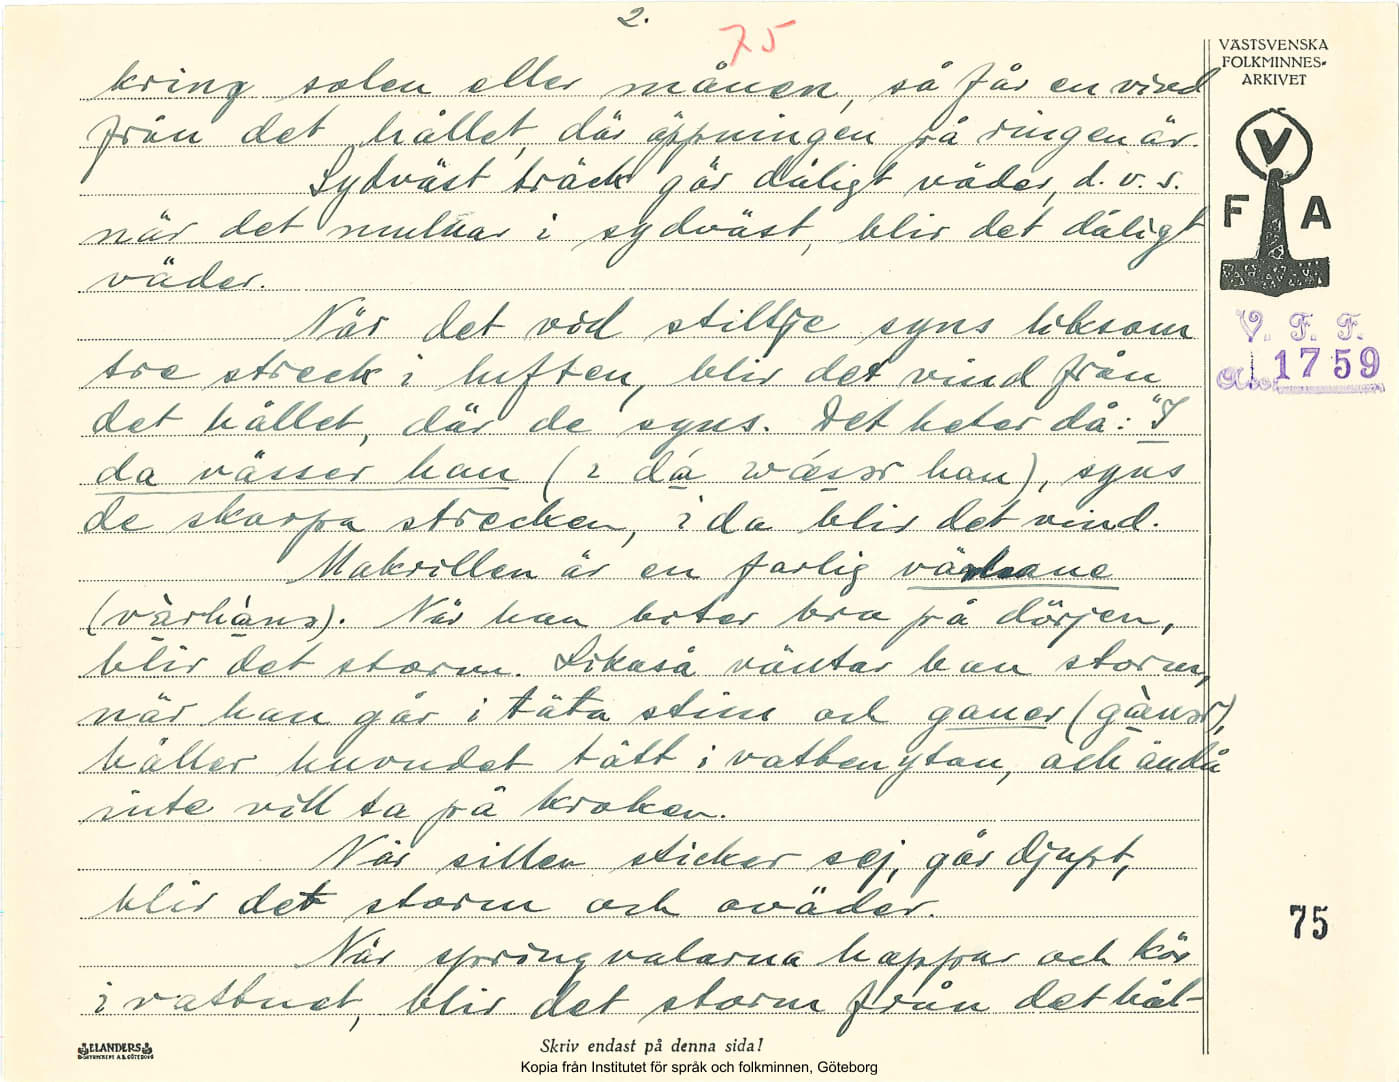 2.
75
VÄSTSVENSKA
FOLKMINNES-
ARKIVET
V
F A
V. F. F.
Acc. 1759
kring solen eller månen, så får en vind
från det hållet, där öppningen på ringen är.
Sydväst bräck gör dåligt väder, d. v. s.
när det mulnar i sydväst, blir det dåligt
väder.
När det vid stiltje syns liksom
tre streck i luften, blir det vind från
det hållet, där de syns. Det heter då: "I
da vässer han (i då wæser han), syns
de skarpa strecken, i da blir det vind.
Makrillen är en farlig värhane
(værhana). När han biter bra på dörjen,
blir det storm. Likaså väntar han storm,
när han går i täta stim och ganer (gàner),
håller huvudet tätt i vattenytan, och ändå
inte vill ta på kroken.
När sillen sticker sej, går djupt,
blir det storm och oväder.
När springvalarna hoppar och kör
i vattnet, blir det storm från det hål-
75
ELANDERS
BOKTRYCKERI A.B. GÖTEBORG
Skriv endast på denna sida!
Kopia från Institutet för språk och folkminnen, Göteborg